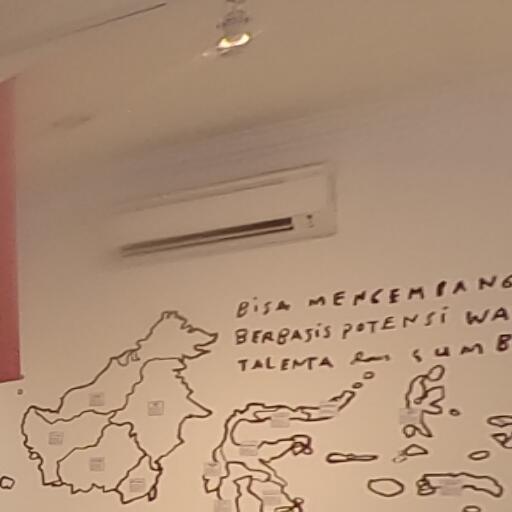 BISA MENGEMBANG
BERBASIS POTENSI WA
TALENTA dan SUMB